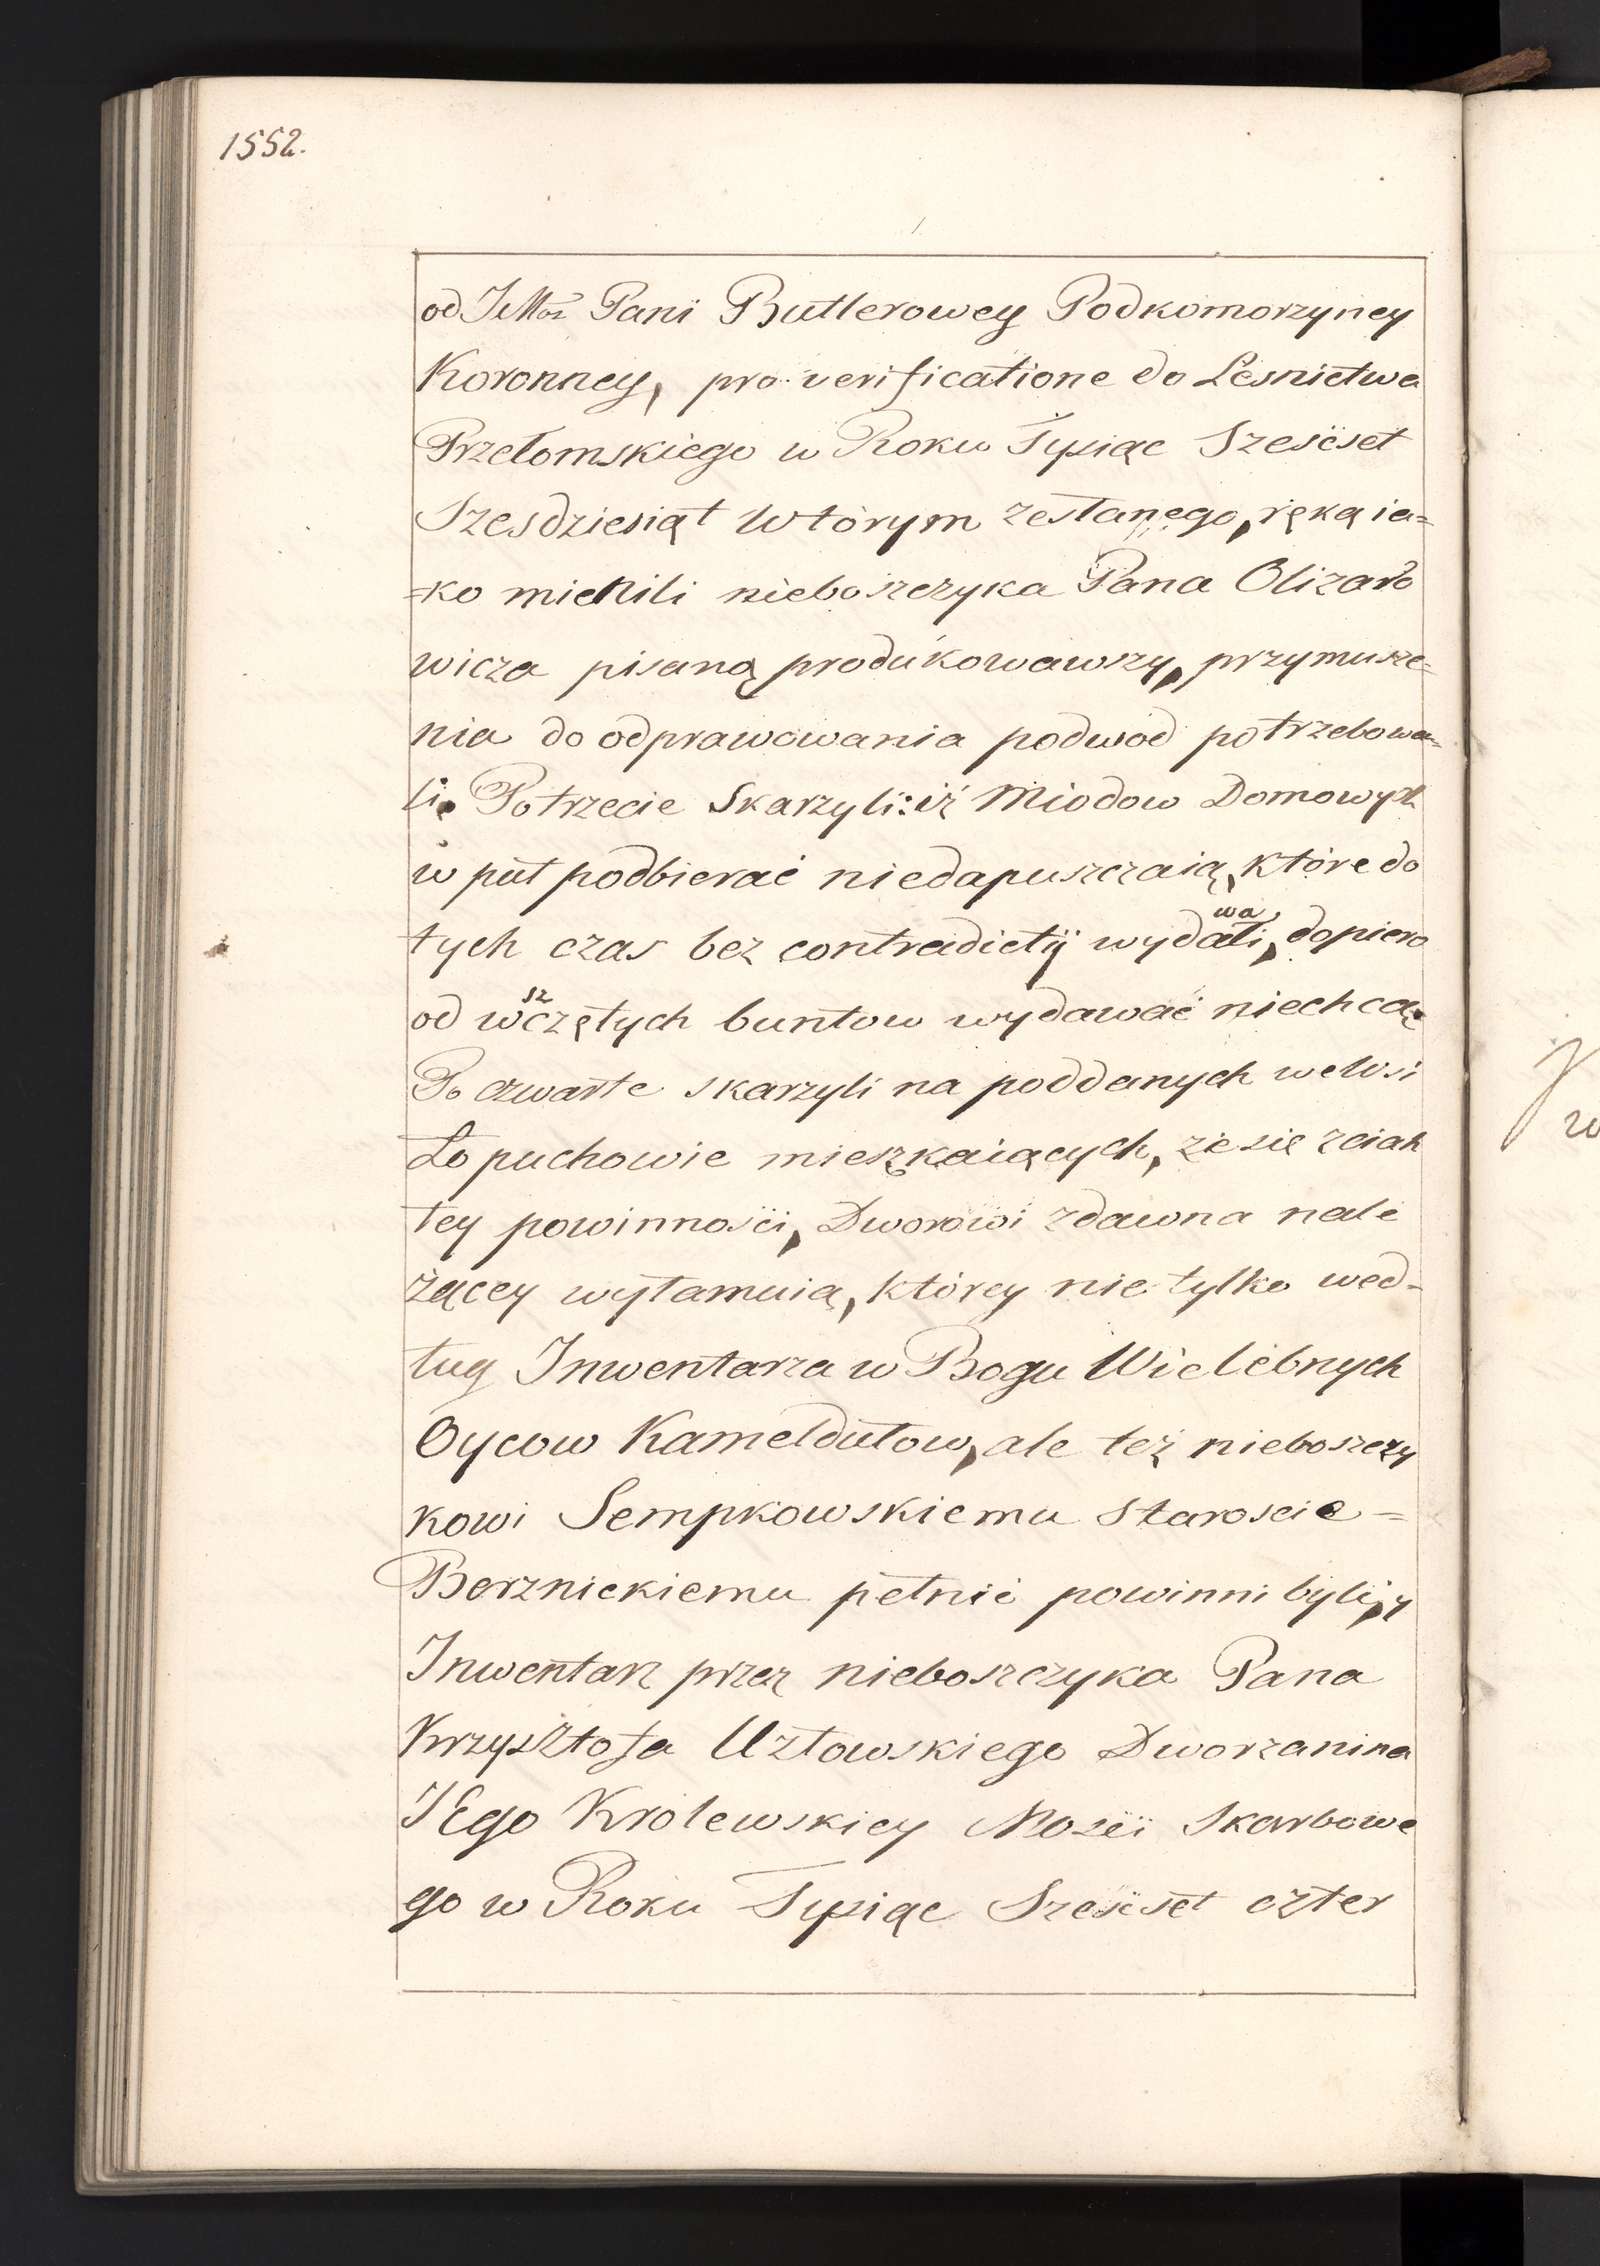 1552.
od JMos Pani Butlerowey Podkomorzyney
Koronney, pro verificatione do Lesnictwa
Przełomskiego w Roku Tysiąc Szesćset
Szesdziesiąt Wtórym zesłanego, ręką ia=
=ko mienili nieboszczyka Pana Olizaro
wicza pisaną produkowawszy, przymusze=
nia do odprawowania podwod potrzebowa=
li. Potrzecie Skarzyli: iż Miodow Domowych
w puł podbierać niedapuszczaią, które do
tych czas bez contradictij wydawali, dopiero
od wszczętych buntow wydawać niechcą.
Po czwarte skarzyli na poddanych we Wsi
Łopuchowie mieszkaiących, że się z ciah
łey powinności, Dworowi zdawna nale
żącey wyłamuią, którey nie tylko wed=
ług Inwentarza w Bogu Wielebnych
Oycow Kameldułow, ale też nieboszczy
kowi Sempkowskiemu Staroscie=
Berznickiemu pełnić powinni byli, y
Inwentarz przez nieboszczyka Pana
Krzysztofa Uztowskiego Dworzanina
JEgo Krolewskiey Mosći Skarbowe
go w Roku Tysiąc Szesćset czter
w